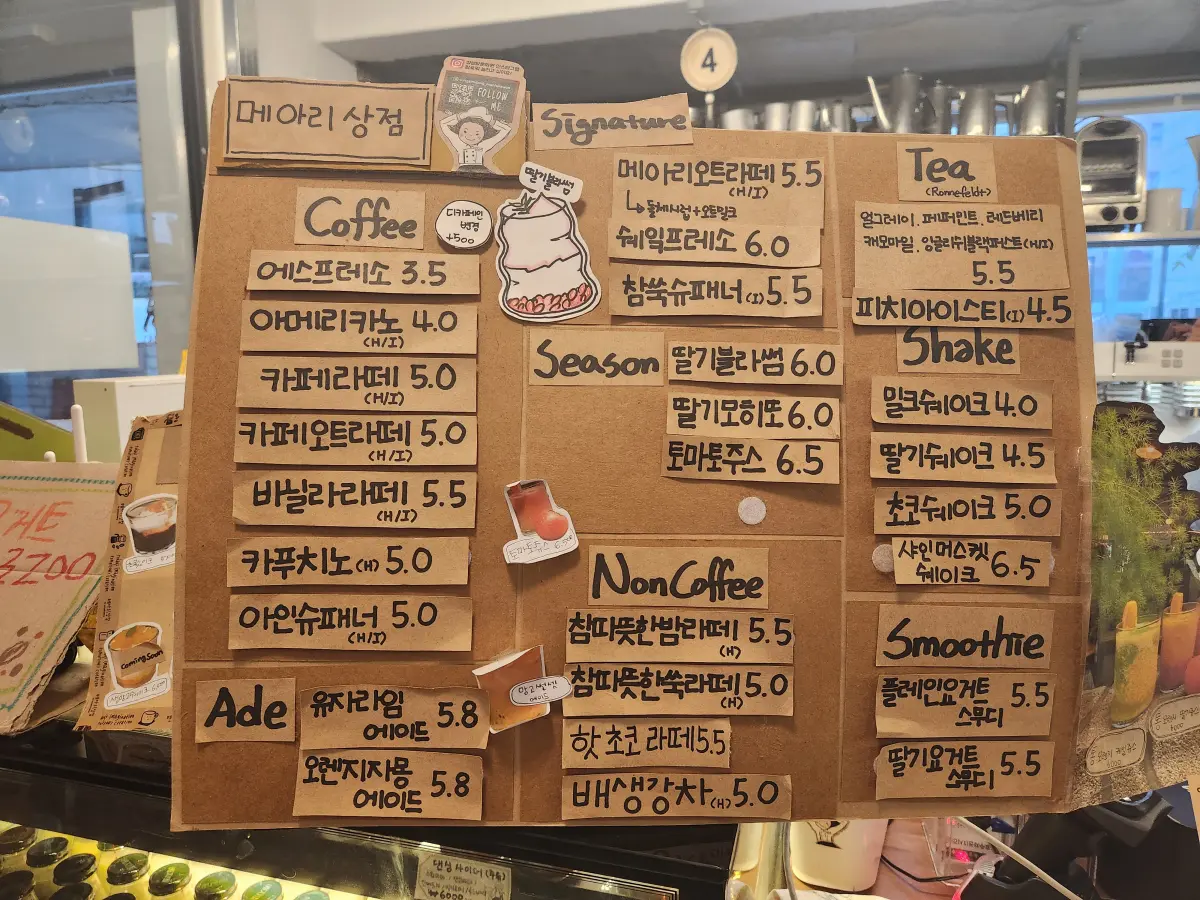 4
메아리 상점
FOLLOW
ME
Coffee
디카페인
변경
+500
에스프레소 3.5
아메리카노 4.0
(H/I)
카페라떼 5.0
(H/I)
카페오트라떼 5.0
(H/I)
바닐라라떼 5.5
(H/I)
카푸치노(H) 5.0
아인슈패너 5.0
(H/I)
Ade
유자라임
에이드 5.8
오렌지자몽
에이드 5.8
Signature
딸기블라썸
메아리오트라떼 5.5
(H/I)
↳ 돌체시럽+오트밀크
쉐잌프레소 6.0
참쑥슈패너(I) 5.5
Season
딸기블라썸 6.0
딸기모히또 6.0
토마토주스 6.5
토마토주스 6.500
NonCoffee
참따뜻한밤라떼 5.5
(H)
참따뜻한쑥라떼 5.0
(H)
핫초코라떼 5.5
배생강차(H) 5.0
Tea
(Ronnefeldt)
얼그레이. 페퍼민트. 레드베리
캐모마일. 잉글리쉬블랙퍼스트(H/I)
5.5
피치아이스티(I) 4.5
Shake
밀크쉐이크 4.0
딸기쉐이크 4.5
초코쉐이크 5.0
샤인머스켓
쉐이크 6.5
Smoothie
플레인요거트
스무디 5.5
딸기요거트
스무디 5.5
Coming Soon
₩6000